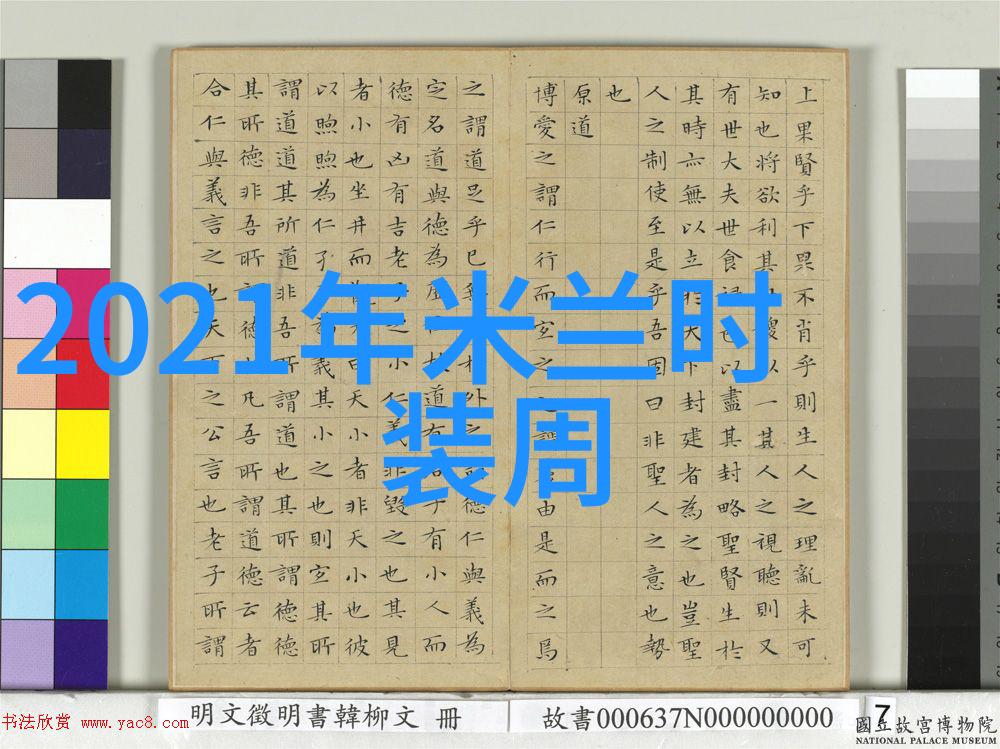 2021年米兰时
装周
上果賢乎下果不肖乎則生人之理亂未可
知也將欲利其稷以一其人之視聽則又
有世大夫世食邑以盡其封略聖賢生於
其時亦無以立於天下封建者為之也豈聖
人之制使至是乎吾固曰非聖人之意也勢
也
原道
博愛之謂仁行而宜之由是而之焉
之謂道足乎己無外之德仁與義為
定名道與德為道有子有小人而
德有凶有吉老之小仁義非毀之也其見
者小也坐井而天曰天小者非天小也彼
以煦煦為仁孑義其小之也則宜其所
謂道道其所道非吾所謂道也其所謂德德
其所德非吾所德也凡吾所謂道德云者
合仁與義言之也天下之公言也老子所謂
明文徵明書韓柳文 冊
故書000637N000000000
7
國立故宮博物院
NATIONAL PALACE MUSEUM
书法欣赏 www.yac8.com